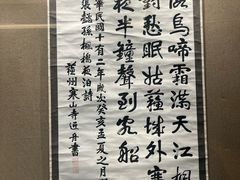 落烏啼霜滿天江楓
對愁眠姑蘇城外寒
夜半鐘聲到客船
華民國十有二年歲次癸亥孟夏之月
張懿孫楓橋夜泊詩
蘇州寒山寺舟書